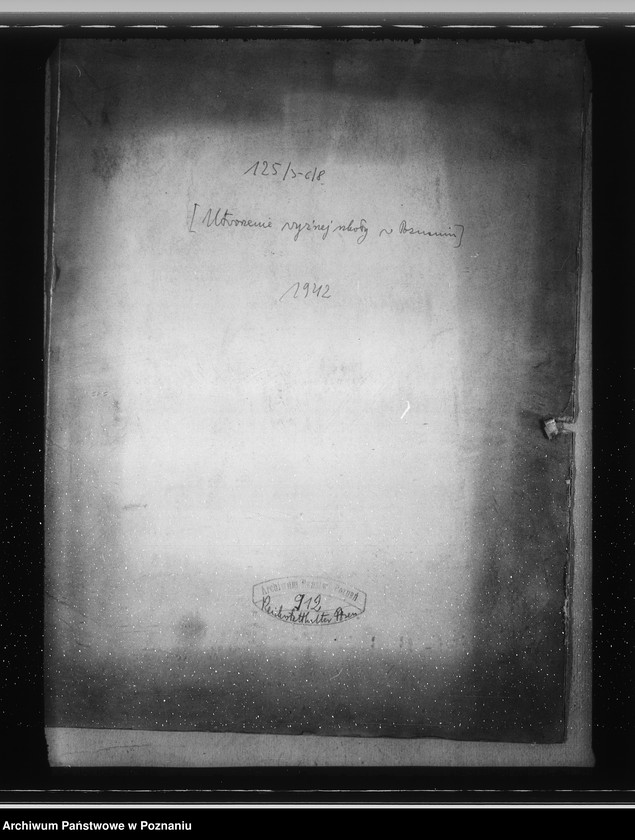 125/5-6/8
[Utworzenie wyższej szkoły w Poznaniu]
1942
Archiwum Państw. Poznań
912
Reichsstatthalter Posen
Archiwum Państwowe w Poznaniu